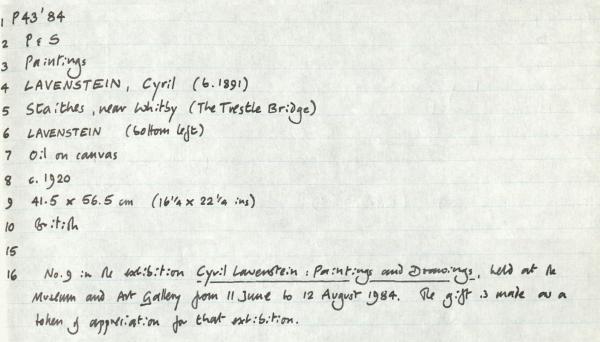 1 P43'84
2 P & S
3 Paintings
4 LAVENSTEIN, Cyril (b.1891)
5 Staithes, near Whitby (The Trestle Bridge)
6 LAVENSTEIN (bottom left)
7 Oil on canvas
8 c. 1920
9 41.5 x 56.5 cm (16¼ x 22¼ ins)
10 British
15
16 No.9 in the exhibition Cyril Lavenstein : Paintings and Drawings, held at the
Museum and Art Gallery from 11 June to 12 August 1984. The gift is made as a
token of appreciation for that exhibition.